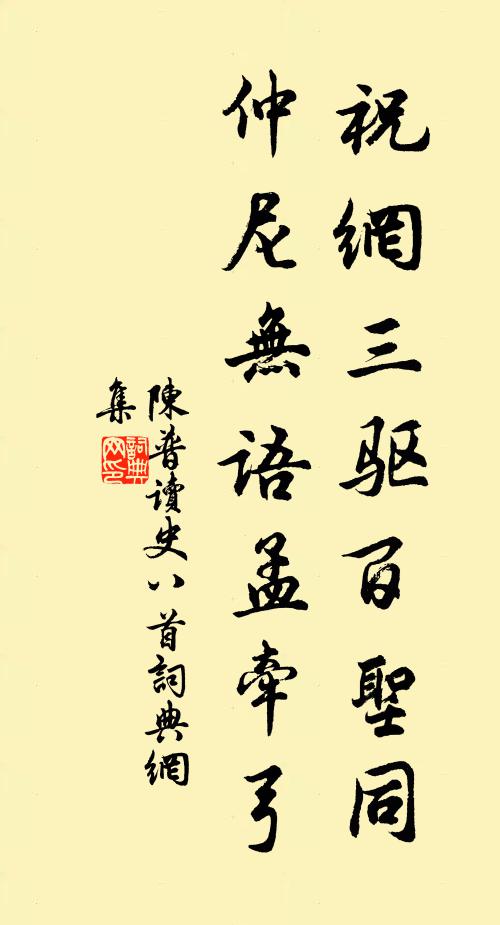 祝網三驱百聖同
仲尼無語孟牽弓
陳普讀史八首詞典網
集
詞典网印